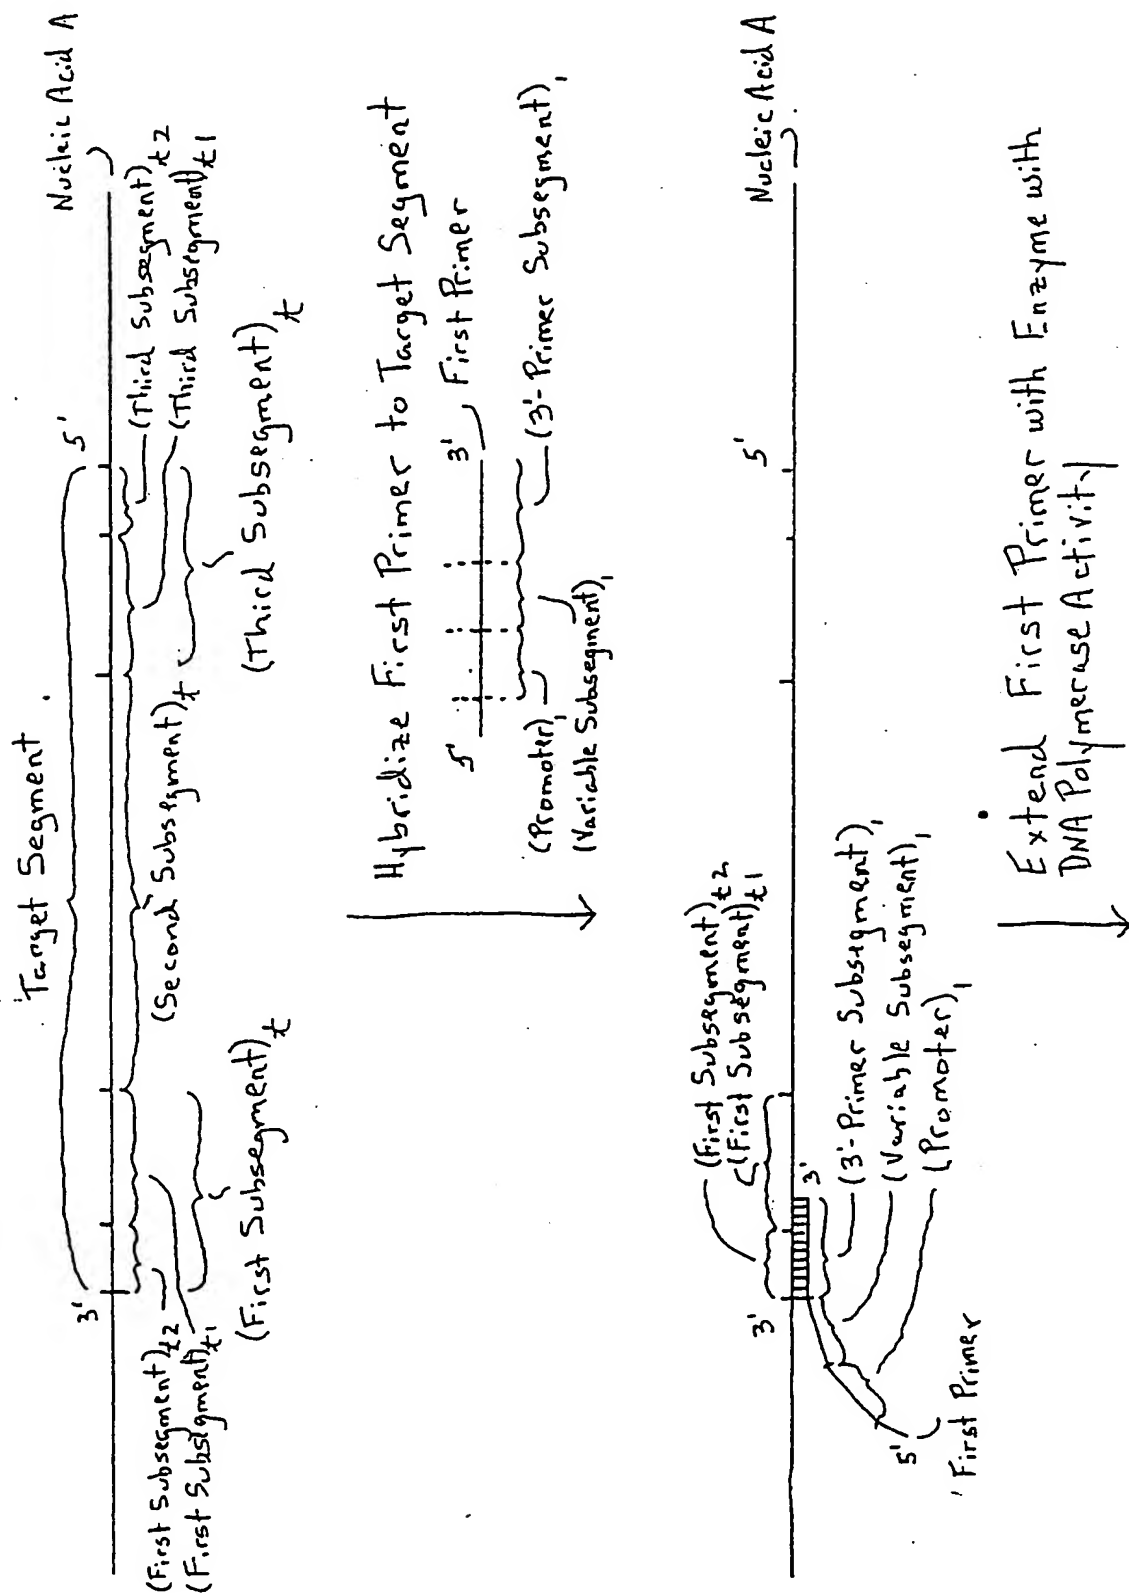 Target Segment
Nucleic Acid A
3'
5'
(First Subsegment)t2
(First Subsegment)t1
(First Subsegment)t
(Second Subsegment)t
(Third Subsegment)t2
(Third Subsegment)t1
(Third Subsegment)t
Hybridize First Primer to Target Segment
5'
3'
First Primer
(Promoter)1
(Variable Subsegment)1
(3'-Primer Subsegment)1
(First Subsegment)t2
(First Subsegment)t1
Nucleic Acid A
3'
5'
3'
(3'-Primer Subsegment)1
(Variable Subsegment)1
(Promoter)1
5'
First Primer
Extend First Primer with Enzyme with
DNA Polymerase Activity